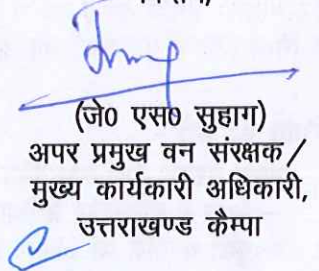 (जे0 एस0 सुहाग)
अपर प्रमुख वन संरक्षक/
मुख्य कार्यकारी अधिकारी,
उत्तराखण्ड कैम्पा